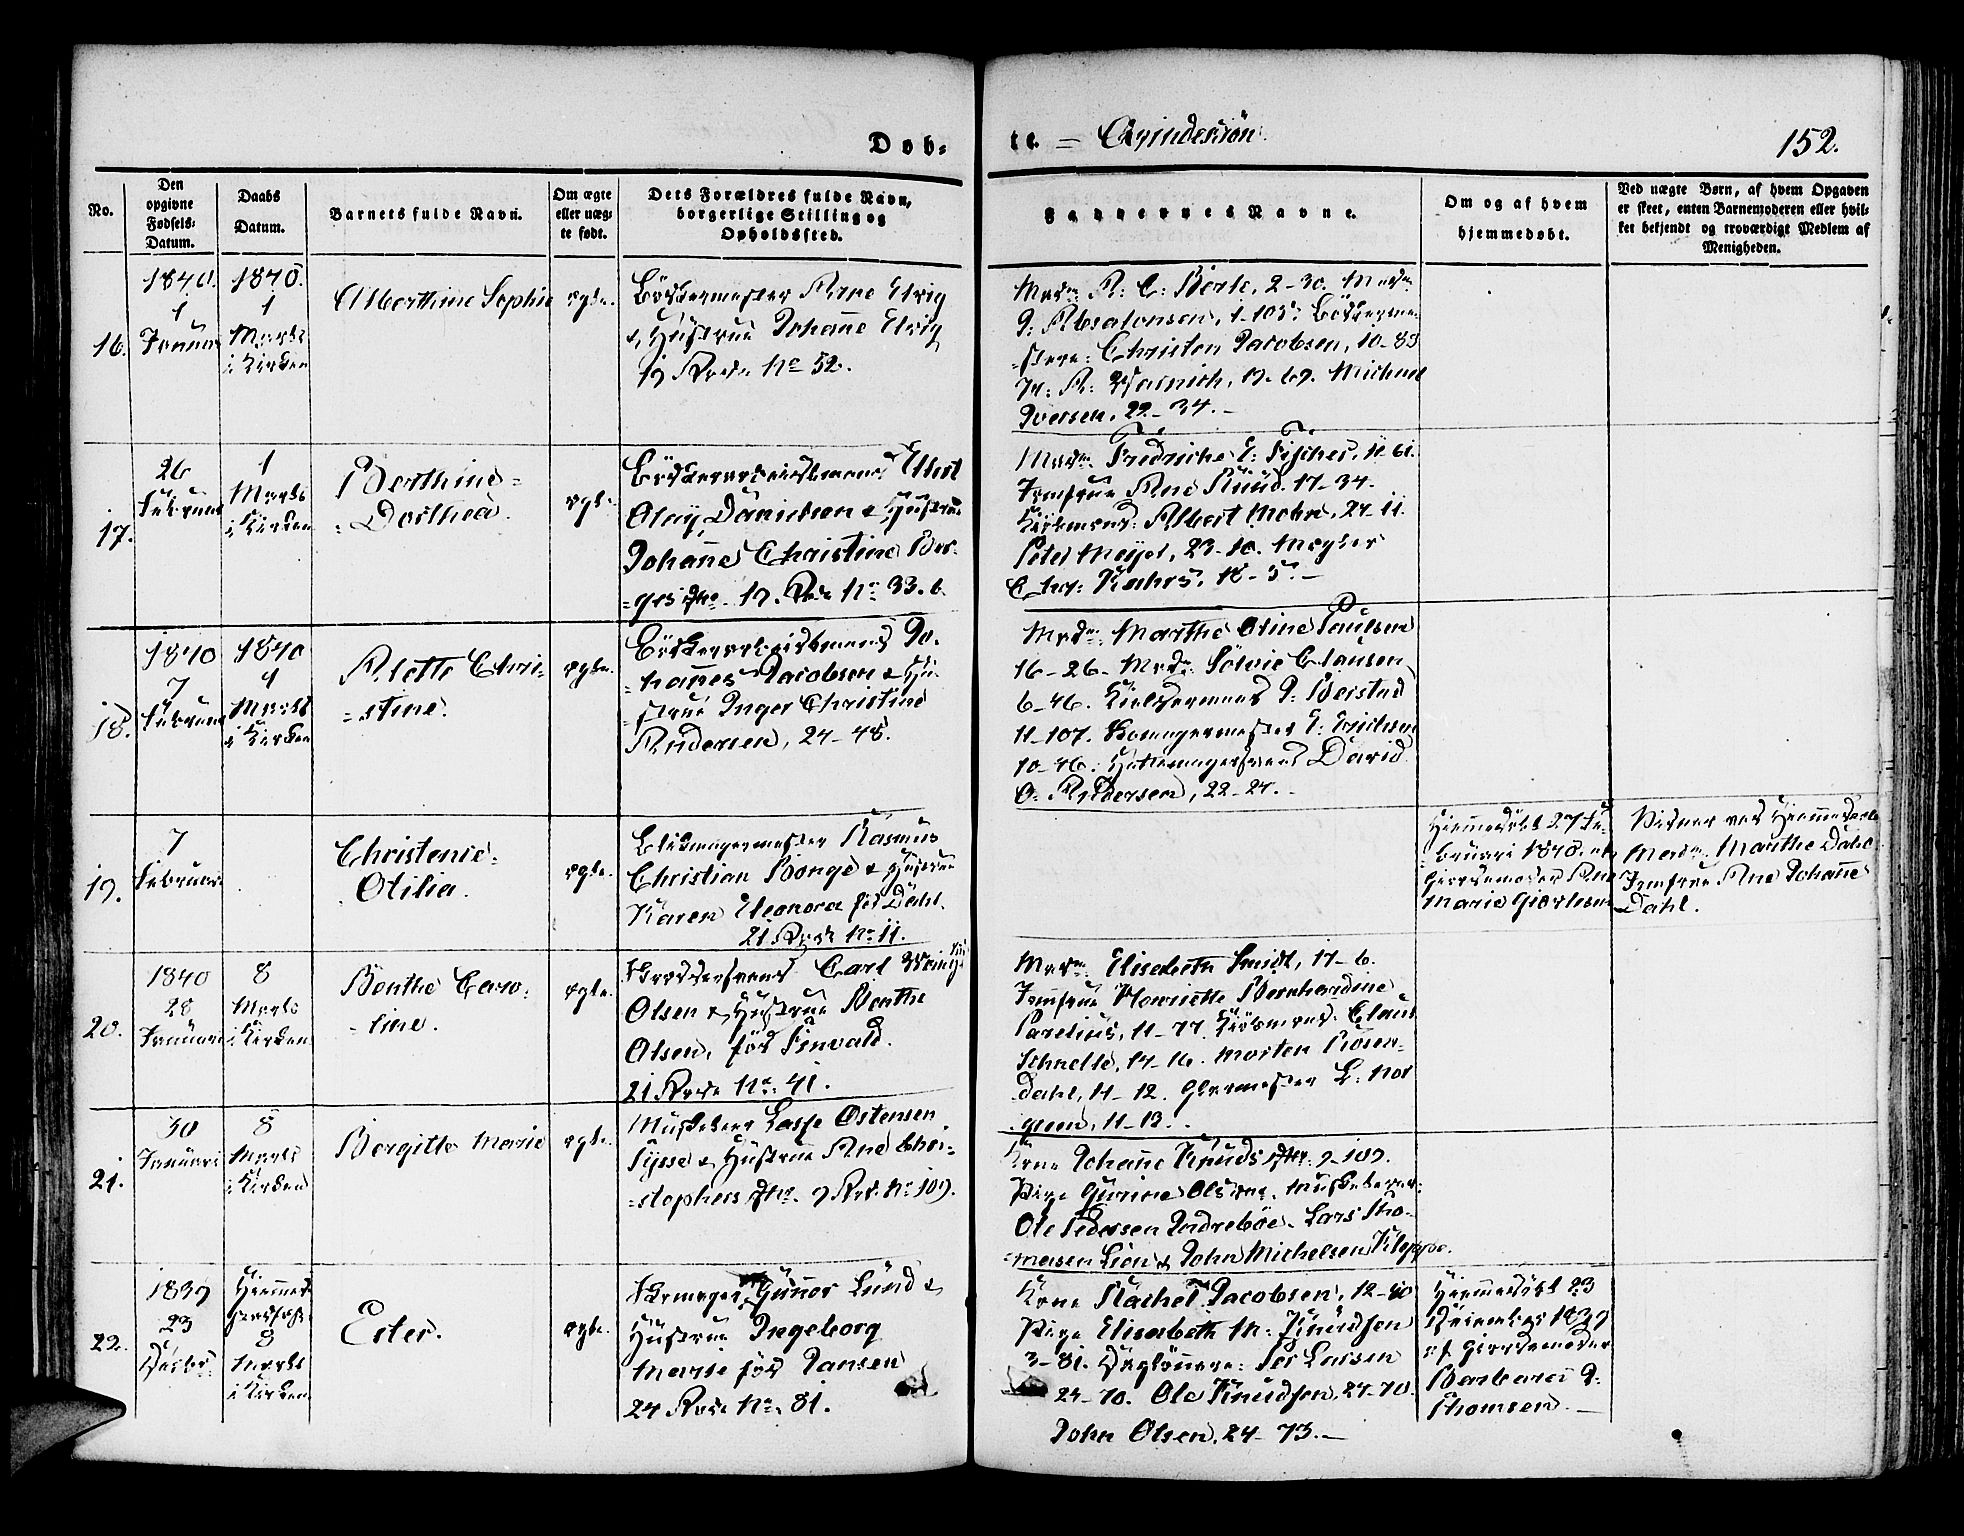 Døb-
te. = Qvindekiøn.
152.
No.
Den
opgivne
Fødsels-
Datum.
Daabs
Datum.
Barnets fulde Navn.
Om ægte
eller uæg-
te født.
Dets Forældres fulde Navn,
borgerlige Stilling og
Opholdssted.
Faddernes Navne.
Om og af hvem
hjemmedøbt.
Ved uægte Børn, af hvem Opgaven
er skeet, enten Barnemoderen eller hvil-
ket bekjendt og troværdigt Medlem af
Menigheden.
16.
1840.
1
Januar
1840.
1
Marts
i Kirken
Alberthine Sophie
ægte.
Bødkermester Arne Elvig
& Hustrue Johanne Elvig
19 Rode No 52.
Mad: A: C: Berle, 2-30. Mad:
J: Absalonsen, 1-105. Bødkerme-
stere: Christen Jacobsen, 10-83
M: A: Warnich, 19-69. Michael
Iversen, 22-34.-
17.
26
Februar
1
Marts
i Kirken
Berthine
Dorthea.
ægte.
Elert
Olay Danielsen & Hustrue
Johanne Christine Bør-
ges Dtr. 19. Rode No 33. b.
Mad: Fredricke E: Fischer, 11-61.
Jomfrue Ane Ruud. 17-34.
Kiøbmænd: Albert Mohn, 24-11.
Peter Meyer, 23-10. Mægler
Chr: Kahrs, 18-5.-
18.
1840
7
Februar
1840
1
Marts
i Kirken
Alette Chri-
stine.
ægte.
Jo-
hannes Jacobsen & Hu-
strue Inger Christine
Andersen, 24-48.
Mad: Marthe Oline Paulsen
16-26. Mad: Sølvie Clausen
6-46. J: Beistad
11-107. E: Erichsen
10-46. David
O: Andersen, 22-24.
19.
7
Februar
Christense
Otilia.
ægte.
Blikmagermester Rasmus
Christian Bonge & Hustrue
Karen Eleonora fød Dahl.
21 Rode No 11.
Hiemmedøbt 27 Fe-
bruari 1840. af
Giordemoder Ane
Marie Giertsen
Vidner ved Hiemmedaab
Mad: Marthe Dahl
Jomfrue Ane Johanne
Dahl.
20.
1840
28
Januari
8
Marts
i Kirken
Benthe Caro-
line.
ægte.
Carl
Olsen & Hustrue Benthe
Olsen, fød Finvald.
21 Rode No 41.
Mad: Elisabeth Smidt, 17-6.
Jomfrue Henriette Bernhardine
Parelius, 11-77. Kiøbmænd: Claus
Schnelle, 14-16. Morten Rosen-
dahl, 11-12. Glarmester L: Nor
green, 11-13.
21.
30
Januari
8
Marts
i Kirken
Børgitte Marie
ægte.
Musketeer Lasse Østensen
Tysse & Hustrue Ane Chri-
stophers Dtr. 9 Rode No 109.
Kone Johanne Knuds Dtr. 9-109.
Pige Gurine Olsen. Musketerer:
Ole Pedersen Indrebøe. Lars Tho-
mesen Lien & John Michelsen Kleppe.
22.
1839
23
Decbr.
Hiemmed
8
Marts
i Kirken
Ester.
ægte.
Gunner Lund &
Hustrue Ingeborg
Marie fød Jansen
24 Rode No 81.
Kone Rachel Jacobsen, 12-80
Pige Elisabeth M: Knudsen
3-81. Daglønnere: Per Larsen
24-70. Ole Knudsen, 24-70.
John Olsen, 24-73.-
Hiemmedøbt 23
December 1839
af Giordemoder
Barbara J:
Thomsen.-